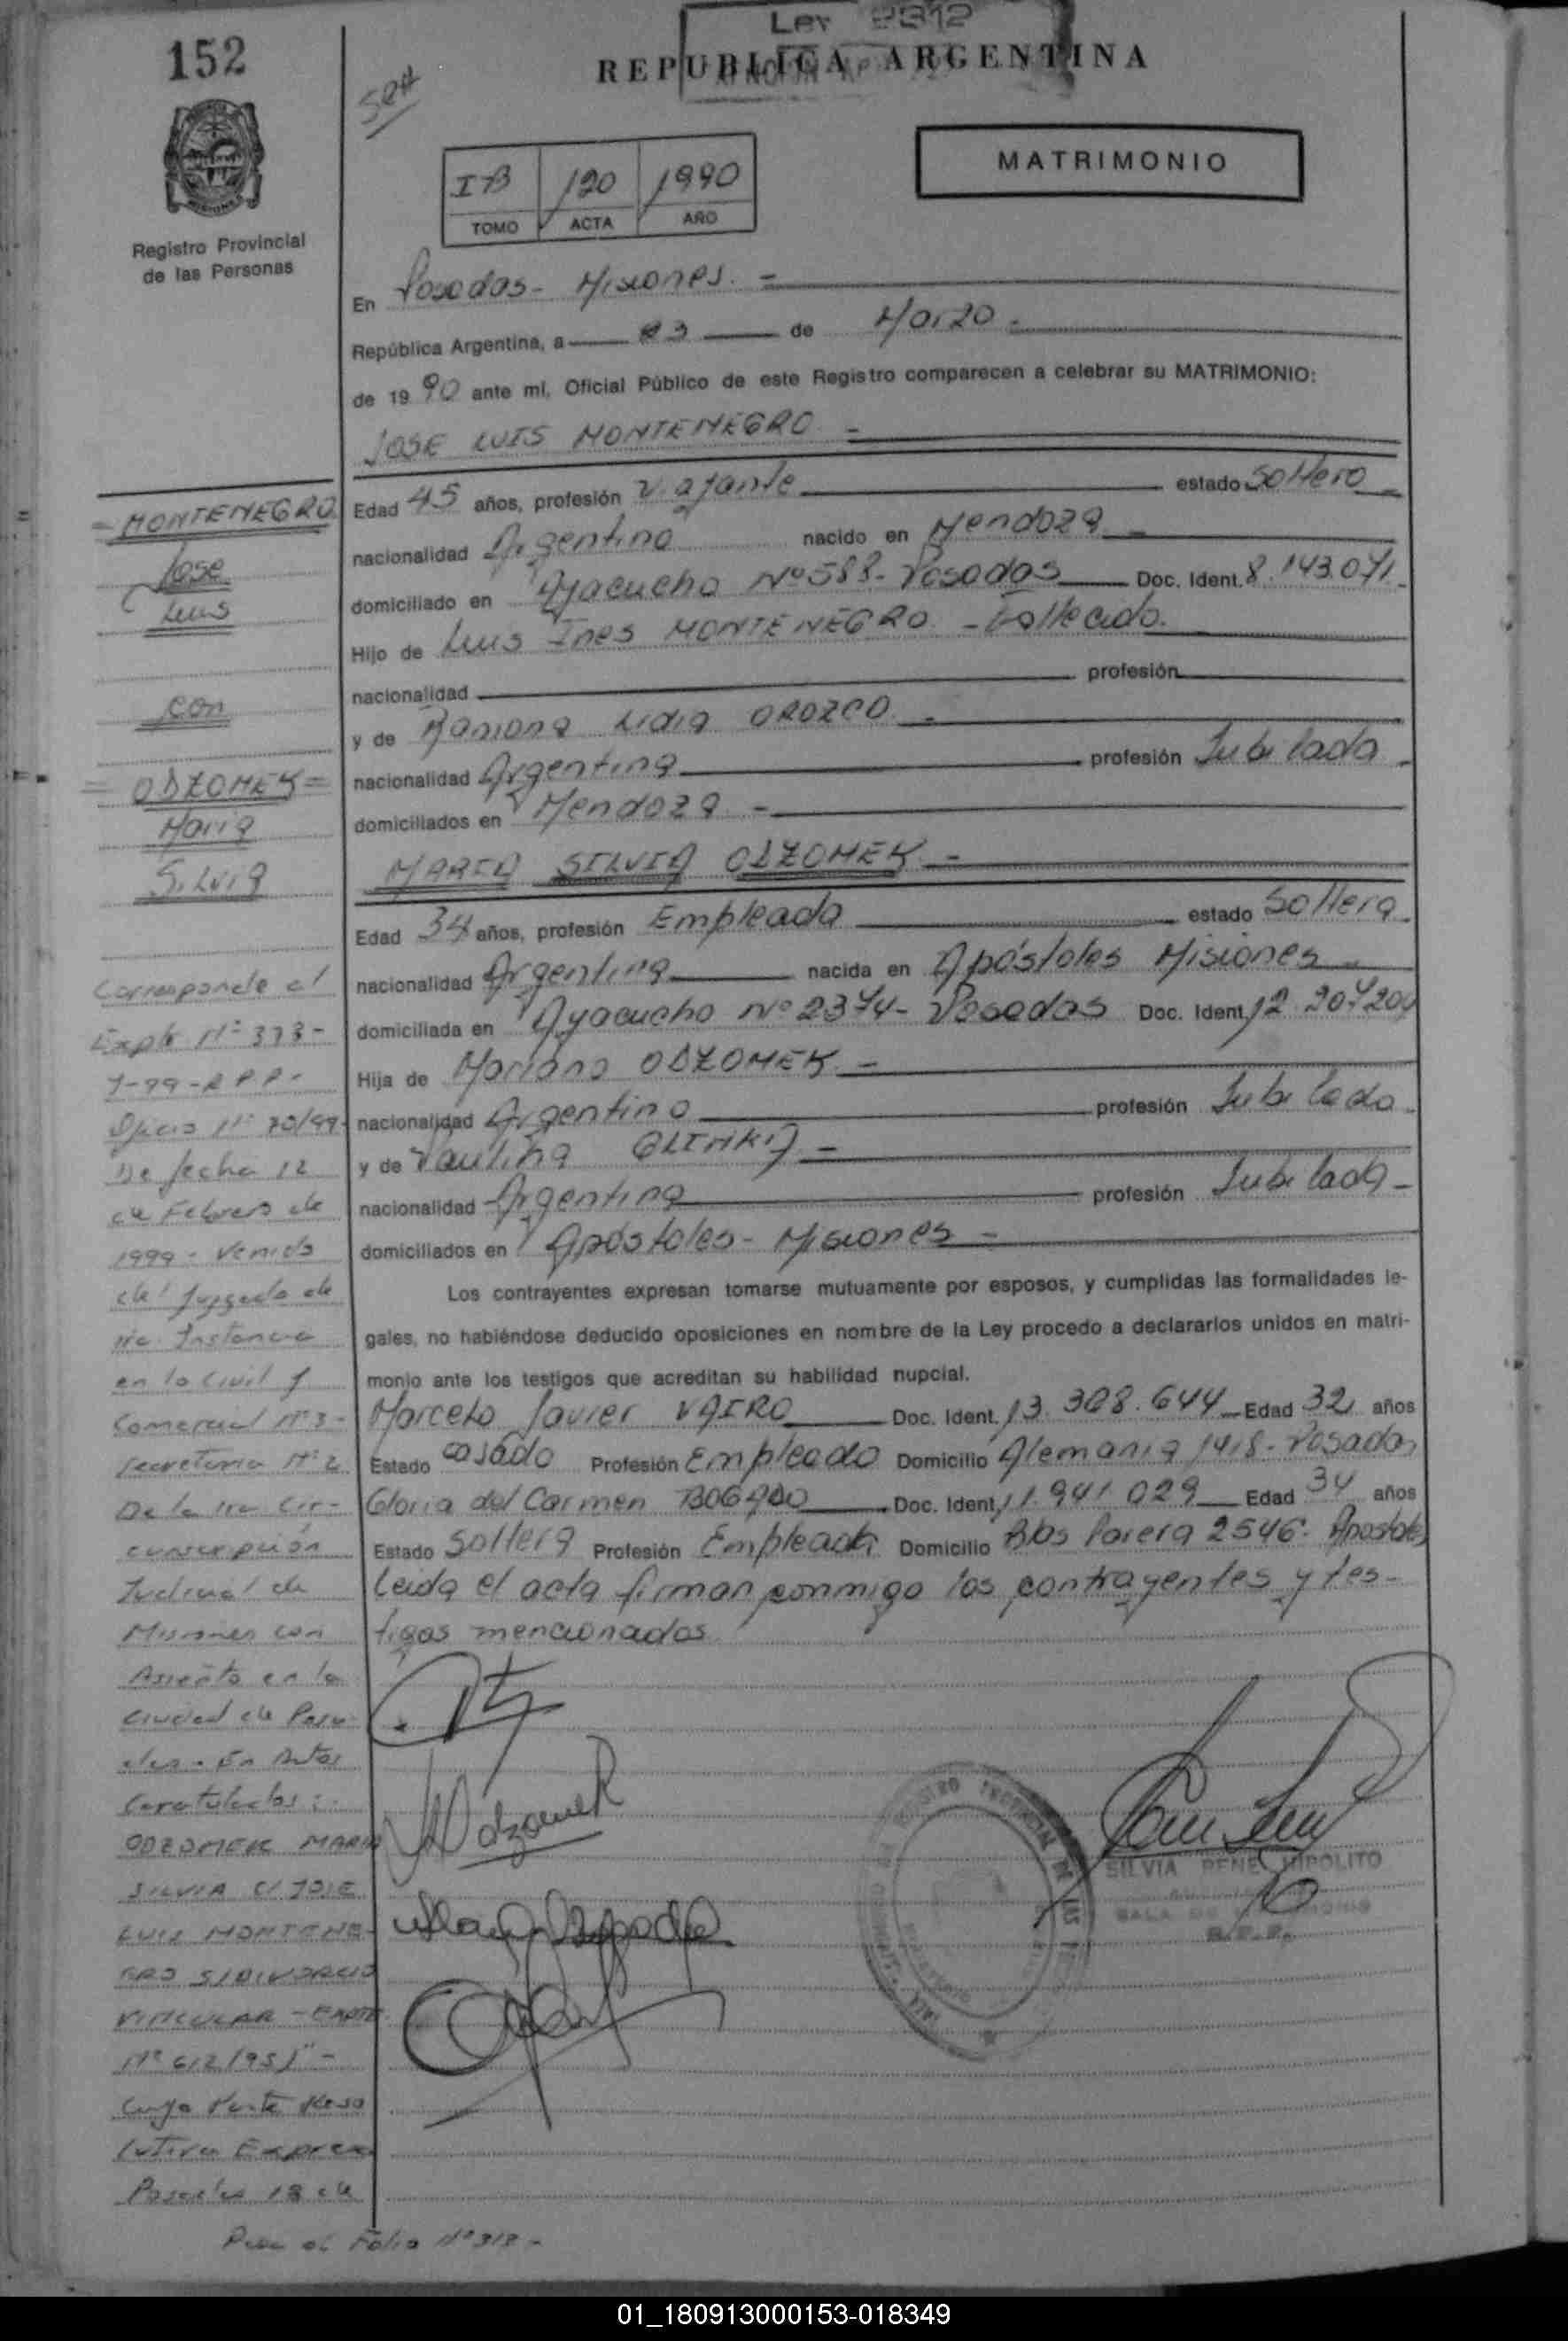 Ley 2312
152
REPUBLICA ARGENTINA
MATRIMONIO
IB 120 1990
TOMO ACTA AÑO
Registro Provincial
de las Personas
En Posadas - Misiones. -
República Argentina, a 23 de Marzo -
de 1990 ante mi, Oficial Público de este Registro comparecen a celebrar su MATRIMONIO:
JOSE LUIS MONTENEGRO -
Edad 45 años, profesión Viajante estado Soltero -
nacionalidad Argentino nacido en Mendoza -
domiciliado en Ayacucho Nº 588 - Posadas Doc. Ident. 8.143.071.
Hijo de Luis Ines MONTENEGRO - Fallecido.
nacionalidad profesión
y de Ramona Lidia OROZCO -
nacionalidad Argentina profesión Jubilada
domiciliados en Mendoza -
MARIA SILVIA ODZOMEK -
Edad 34 años, profesión Empleada estado Soltera
nacionalidad Argentina nacida en Apóstoles Misiones -
domiciliada en Ayacucho Nº 2374 - Posadas Doc. Ident. 12.207.200
Hija de Mariano ODZOMEK -
nacionalidad Argentino profesión Jubilado
y de Paulina -
nacionalidad Argentina profesión Jubilada -
domiciliados en Apóstoles - Misiones -
Los contrayentes expresan tomarse mutuamente por esposos, y cumplidas las formalidades le-
gales, no habiéndose deducido oposiciones en nombre de la Ley procedo a declararlos unidos en matri-
monio ante los testigos que acreditan su habilidad nupcial.
Marcelo Javier VAIRO Doc. Ident. 13.388.644 Edad 32 años
Estado casado Profesión Empleado Domicilio Alemania 1418 - Posadas
Gloria del Carmen BOGADO Doc. Ident. 11.941.029 Edad 34 años
Estado Soltera Profesión Empleada Domicilio Blas Parera 2546 - Apostoles
Leida el acta firman conmigo los contrayentes y tes-
tigos mencionados
= MONTENEGRO
Jose
Luis
con
= ODZOMEK =
Maria
Silvia
Corresponde al
Expte Nº 373 -
J-99 - R.P.P.-
Oficio Nº 70/99
De fecha 12
de Febrero de
1999 - Venido
del Juzgado de
1ra. Instancia
en lo Civil y
Comercial Nº 3 -
Secretaria Nº 2
De la 1ra Cir-
cunscripción
Judicial de
Misiones con
Asiento en la
Ciudad de Posa-
das - En Autos
Caratulados:
ODZOMEK MARIA
SILVIA C/ JOSE
LUIS MONTENE-
GRO S/DIVORCIO
VINCULAR - EXPTE
Nº 612/95)" -
Cuya Parte Reso
lutiva Expresa
Posadas 18 de
Pasa al Folio Nº 313 -
Odzomek
SILVIA RENE HIPOLITO
SALA DE MATRIMONIO
R.P.P.
01_180913000153-018349